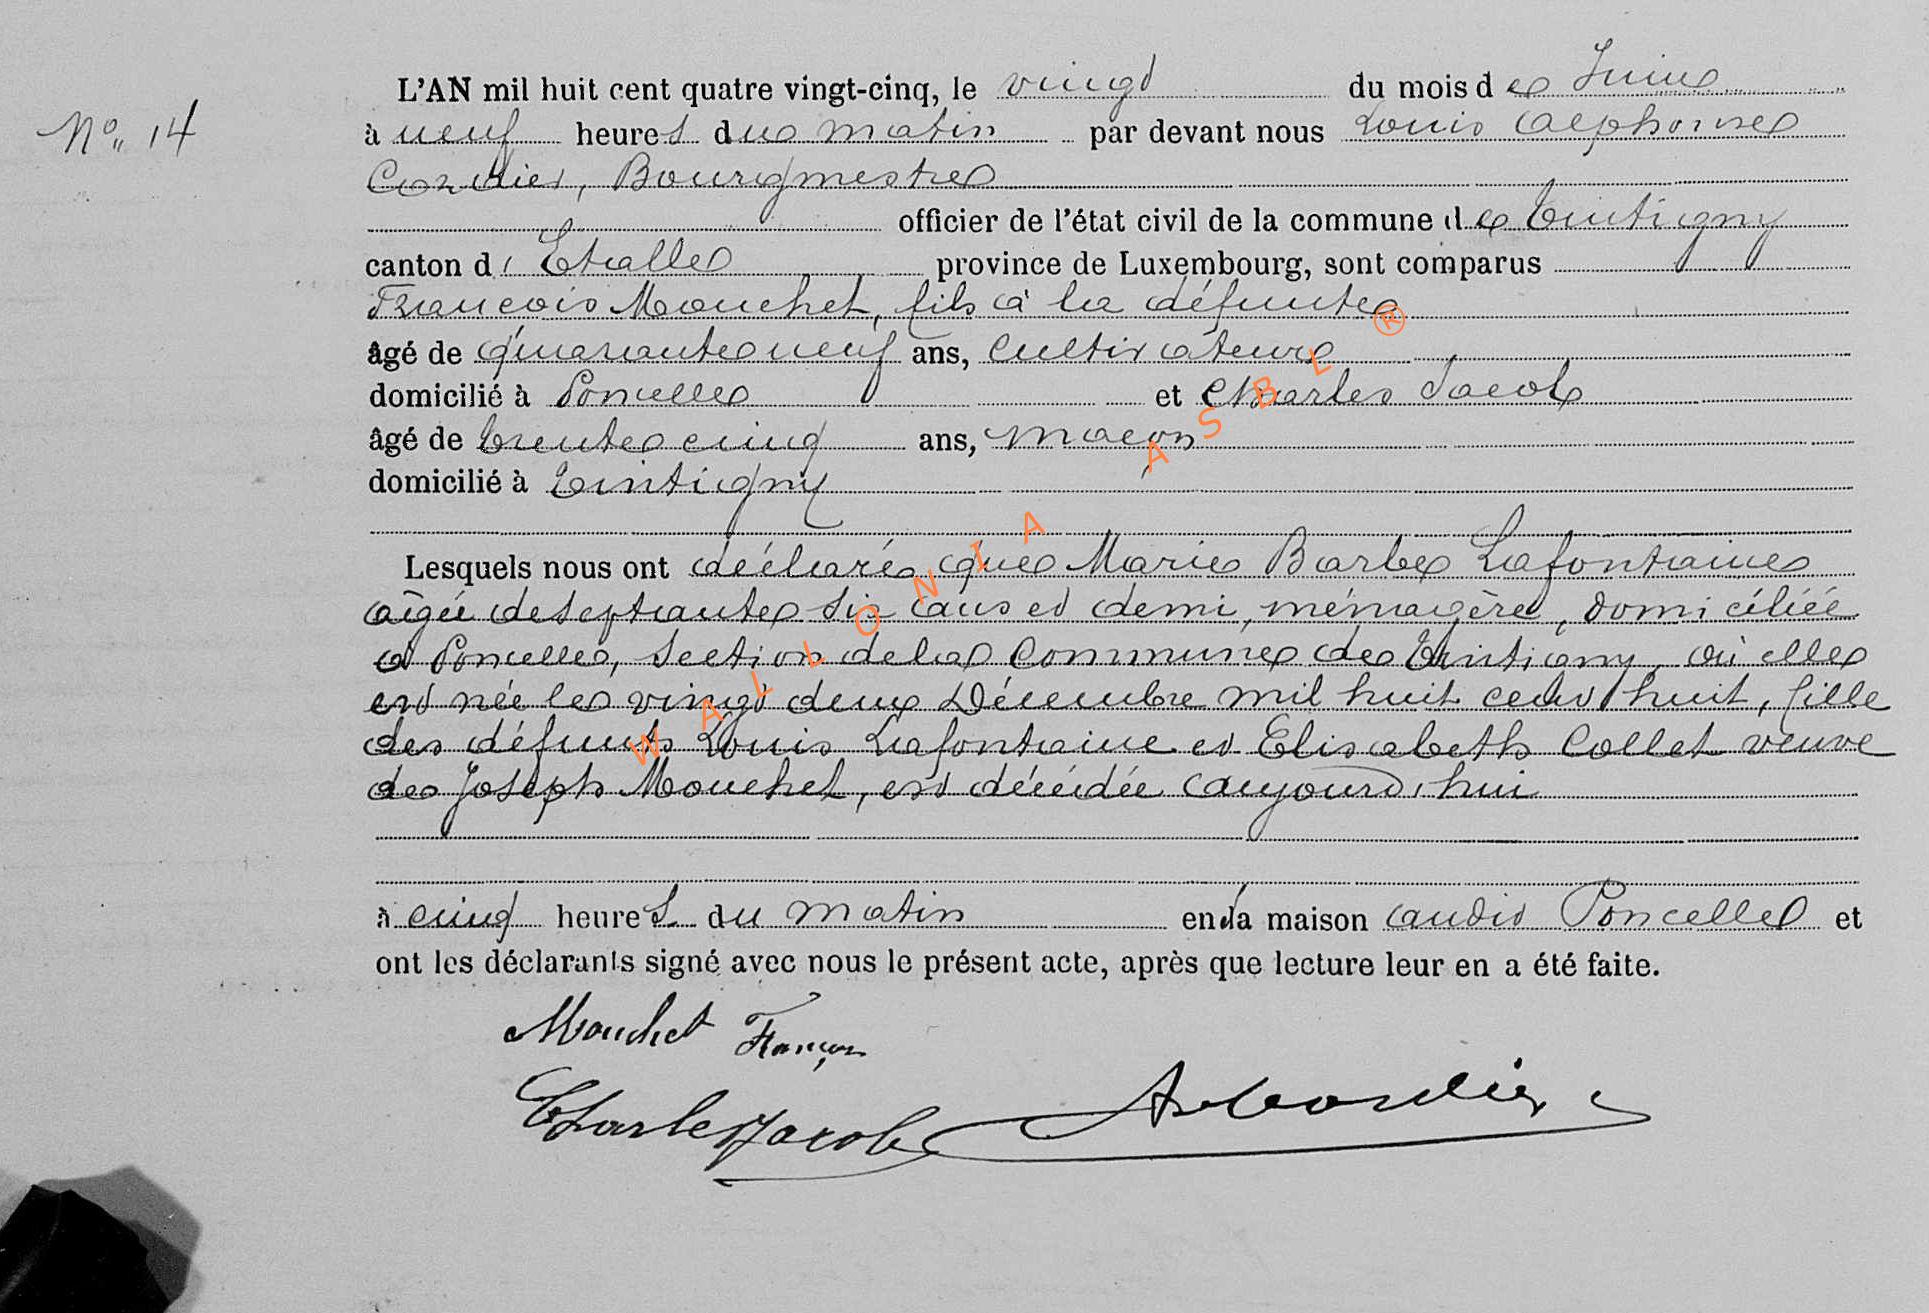 N° 14
L'AN mil huit cent quatre vingt-cinq, le vingt du mois de Juin
à neuf heures du matin par devant nous Louis Alphonse
Cordier, Bourgmestre
officier de l'état civil de la commune de Tintigny
canton d'Etalle province de Luxembourg, sont comparus
François Mouchet, fils à la défunte
âgé de quarante neuf ans, cultivateur
domicilié à Poncelle et Charles Jacob
âgé de trente cinq ans, maçon
domicilié à Tintigny
Lesquels nous ont déclaré que Marie Barbe Lafontaine
agée de septante six ans et demi, ménagère, domiciliée
à Poncelle, section de la Commune de Tintigny, où elle
est née le vingt deux Décembre mil huit cent huit, fille
des défunts Louis Lafontaine et Elisabeth Collet veuve
de Joseph Mouchet, est décédée aujourd'hui
à cinq heures du matin en sa maison audit Poncelle et
ont les déclarants signé avec nous le présent acte, après que lecture leur en a été faite.
Mouchet François
Charles Jacob
A Cordier
WALLONIA ASBL ®